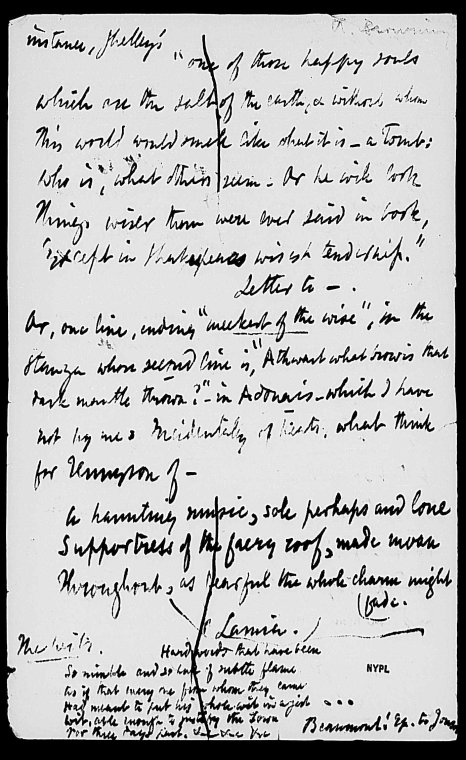 R. Browning
instance, Shelley's
"one of those happy souls
which are the salt of the earth, & without whom
This world would smell like what it is – a Tomb:
who is, what others seem. Or he with
Things wiser than were ever said in book,
except in Shakespeare's wisest tenderness."
Letter to –.
Or, one line, ending "meekest of the wise", in the
stanza whose second line is, "Athwart what brow is that
dark mantle thrown?" – in Adonais – which I have
not by me: Incidentally of Keats, what think
for Tennyson of –
A haunting music, sole perhaps and lone
Supportress of the faery roof, made moan
Throughout, as fearful the whole charm might
fade.
(Lamia.)
The wits.
Hard words that have been
So nimble and so full of subtle flame
As if that every one from whom they came
Had meant to put his whole wit in a jest . . .
Wit, able enough to justify the town
For three days past.
Beaumont: Ep. to Jon
NYPL